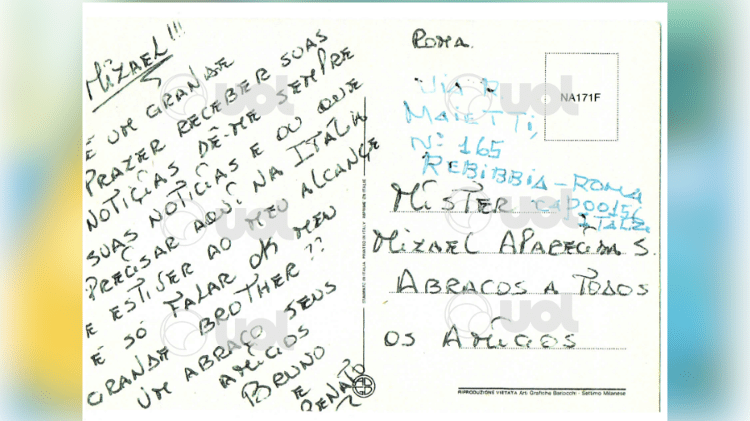 MIZAEL!!!
É UM GRANDE
PRAZER RECEBER SUAS
NOTICIAS DÊ-ME SEMPRE
SUAS NOTICIAS E O QUE
PRECISAR AQUI NA ITALIA
E ESTIVER AO MEU ALCANCE
É SÓ FALAR OK MEU
GRANDE BROTHER??
UM ABRAÇO SEUS
AMIGOS
BRUNO
E
RENATO
ROMA.
NA171F
Via R
MAIETTI,
Nº 165
REBIBBIA - ROMA
CAP 00156
MISTER
MIZAEL APARECIDA S.
ABRACOS A TODOS
OS AMIGOS
RIPRODUZIONE VIETATA
Settimo Milanese
uol
uol
uol
uol
uol
uol